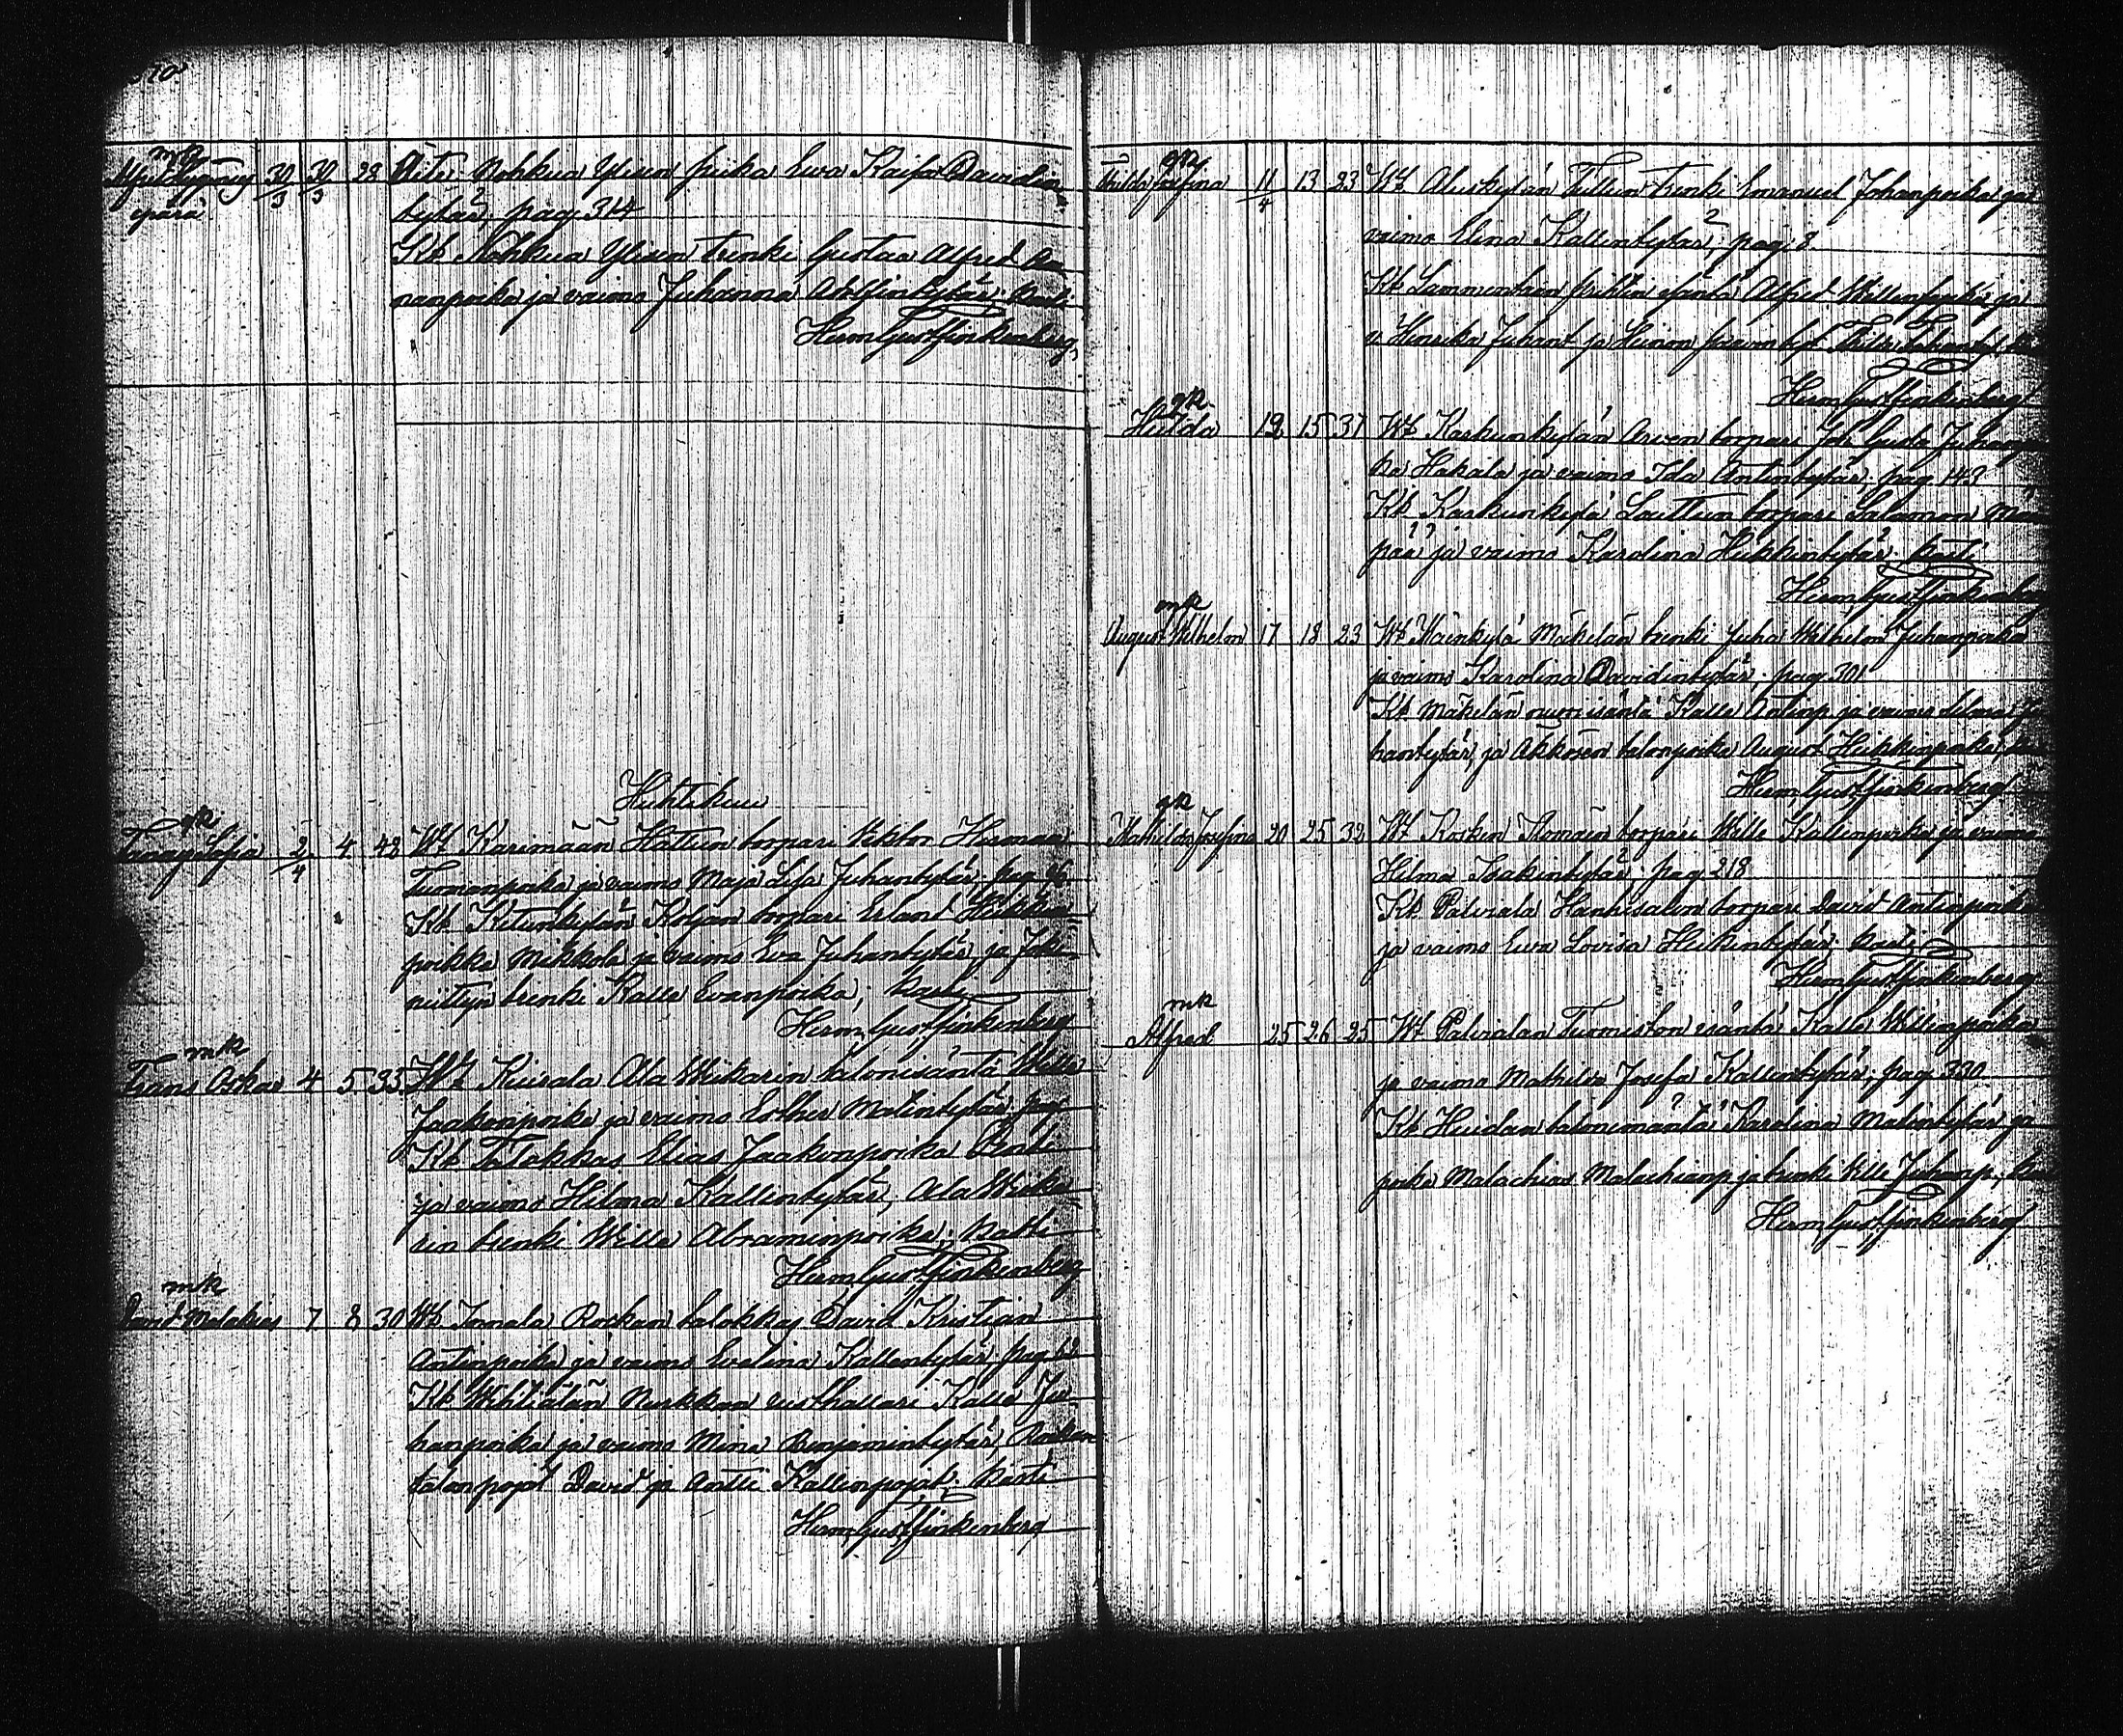 mk
30/3 30/3 28 Äiti: Nohkua Ylisen piika Eva Kaisa Davidin
epärä
tytär, pag 314
Kt Nohkua Ylisen trenki Gustaa Alfred
nanpoika ja vaimo Juhanna Adolfintytär; kasti
Herm Gust Finkenberg
Huhtikuu
gk
Fanny Sofia 2/4 4 42 Wt Karimään Hattun torpari Viktor Herman
Tuomanpoika ja vaimo Maja Lisa Juhantytär; pag
Kt Ketunkylän torpari Erland Heikin
poikka Mikkola ja vaimo Eva Juhantytär ja Joke
niityn trenki Kalle Evanpoika; kasti
Herm Gust Finkenberg
mk
Frans Oskar 4 5 35 Wt Kuirala Ala Wikarin talonisäntä Wille
Jaakonpoika ja vaimo Esther Matintytär, pag
Kt Talokkas Elias Jaakonpoika
ja vaimo Hilma Kallentytär, Ala Wika
rin trenki Wille Abraminpoika; kasti
Herm Gust Finkenberg
mk
David Malakias 7 8 30 Wt Tomala Rockan talokkas David Kristian
Antinpoika ja vaimo Evelina Kallentytär; pag 62
Kt Wihtiälän Nirkkan rusthallari Kalle Ju
hanpoika ja vaimo Mina Benjamintytär, Rockan
talonpojat David ja Antti Kallenpojat; kasti
Herm Gust Finkenberg
gk
Hilda Josefina 11/4 13 23 Wt Aluskylän Tullun trenki Emanuel Johanpoika ja
vaimo Elina Kallentytär; pag: 8
Kt Sammentaan isäntä Alfred Willenpoika ja
v. Henrika Juhant ja
Herm Gust Finkenberg
gk
Hulda 12 15 37 Wt Karhunkylän Arvon torpari Joh. Gusta Juhanpoi
ka Hakala ja vaimo Ida Antintytär; pag 143
Kt Karhunkylä Lauttun torpari Salomon Mä
pää ja vaimo Karolina Heikkintytär. kasti
Herm Gust Finkenberg
mk
August Wilhelm 17 18 23 Wt Mäenkylä Mäkelän trenki Juha Wilhelm Juhanpoika
ja vaimo Karolina Davidintytär; pag 301
Kt Mäkelän nuori isäntä Kalle Antinp. ja vaimo Hilma Ju
hantytär, ja Akkosen talonpoika August Heikkinpoika,
Herm Gust Finkenberg
gk
Mathilda Josefina 20 25 32 Wt Kosken torpari Wille Kallenpoika ja vaimo
Hilma Isakintytär; pag 218
Kt Palviala Hanhisalon torpari David Antinpoika
ja vaimo Eva Lovisa Heikintytär. kasti
Herm Gust Finkenberg
mk
Alfred 25 26 25 Wt Palvialan Turmiston isäntä Kalle Willenpoika
ja vaimo Mathilda Josefa Kallentytär; pag 330
Kt Heidan talonemäntä Karolina Matintytär ja
poika Malachias Malachianp. ja trenki Wille Juhanp.,
Herm Gust Finkenberg